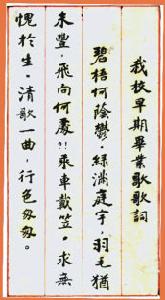 我校早期畢業歌歌詞
碧梧何蔭鬱,綠滿庭宇,羽毛猶
未豐,飛向何處!!乘車戴笠。求無
愧於生。清歌一曲,行色匆匆。